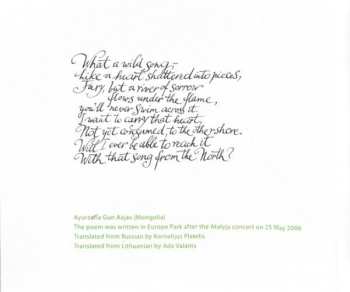 What a wild song;
Like a heart shattered into pieces,
Fury, but a river of sorrow
flows under the flame,
you'll never swim across it.
I want to carry that heart,
Not yet consumed, to the other shore.
Will I ever be able to reach it
With that song from the North?
Ayurzana Gun Aajav (Mongolia)
The poem was written in Europe Park after the Malyja concert on 25 May 2006
Translated from Russian by Kornelijus Platelis
Translated from Lithuanian by Ada Valaitis